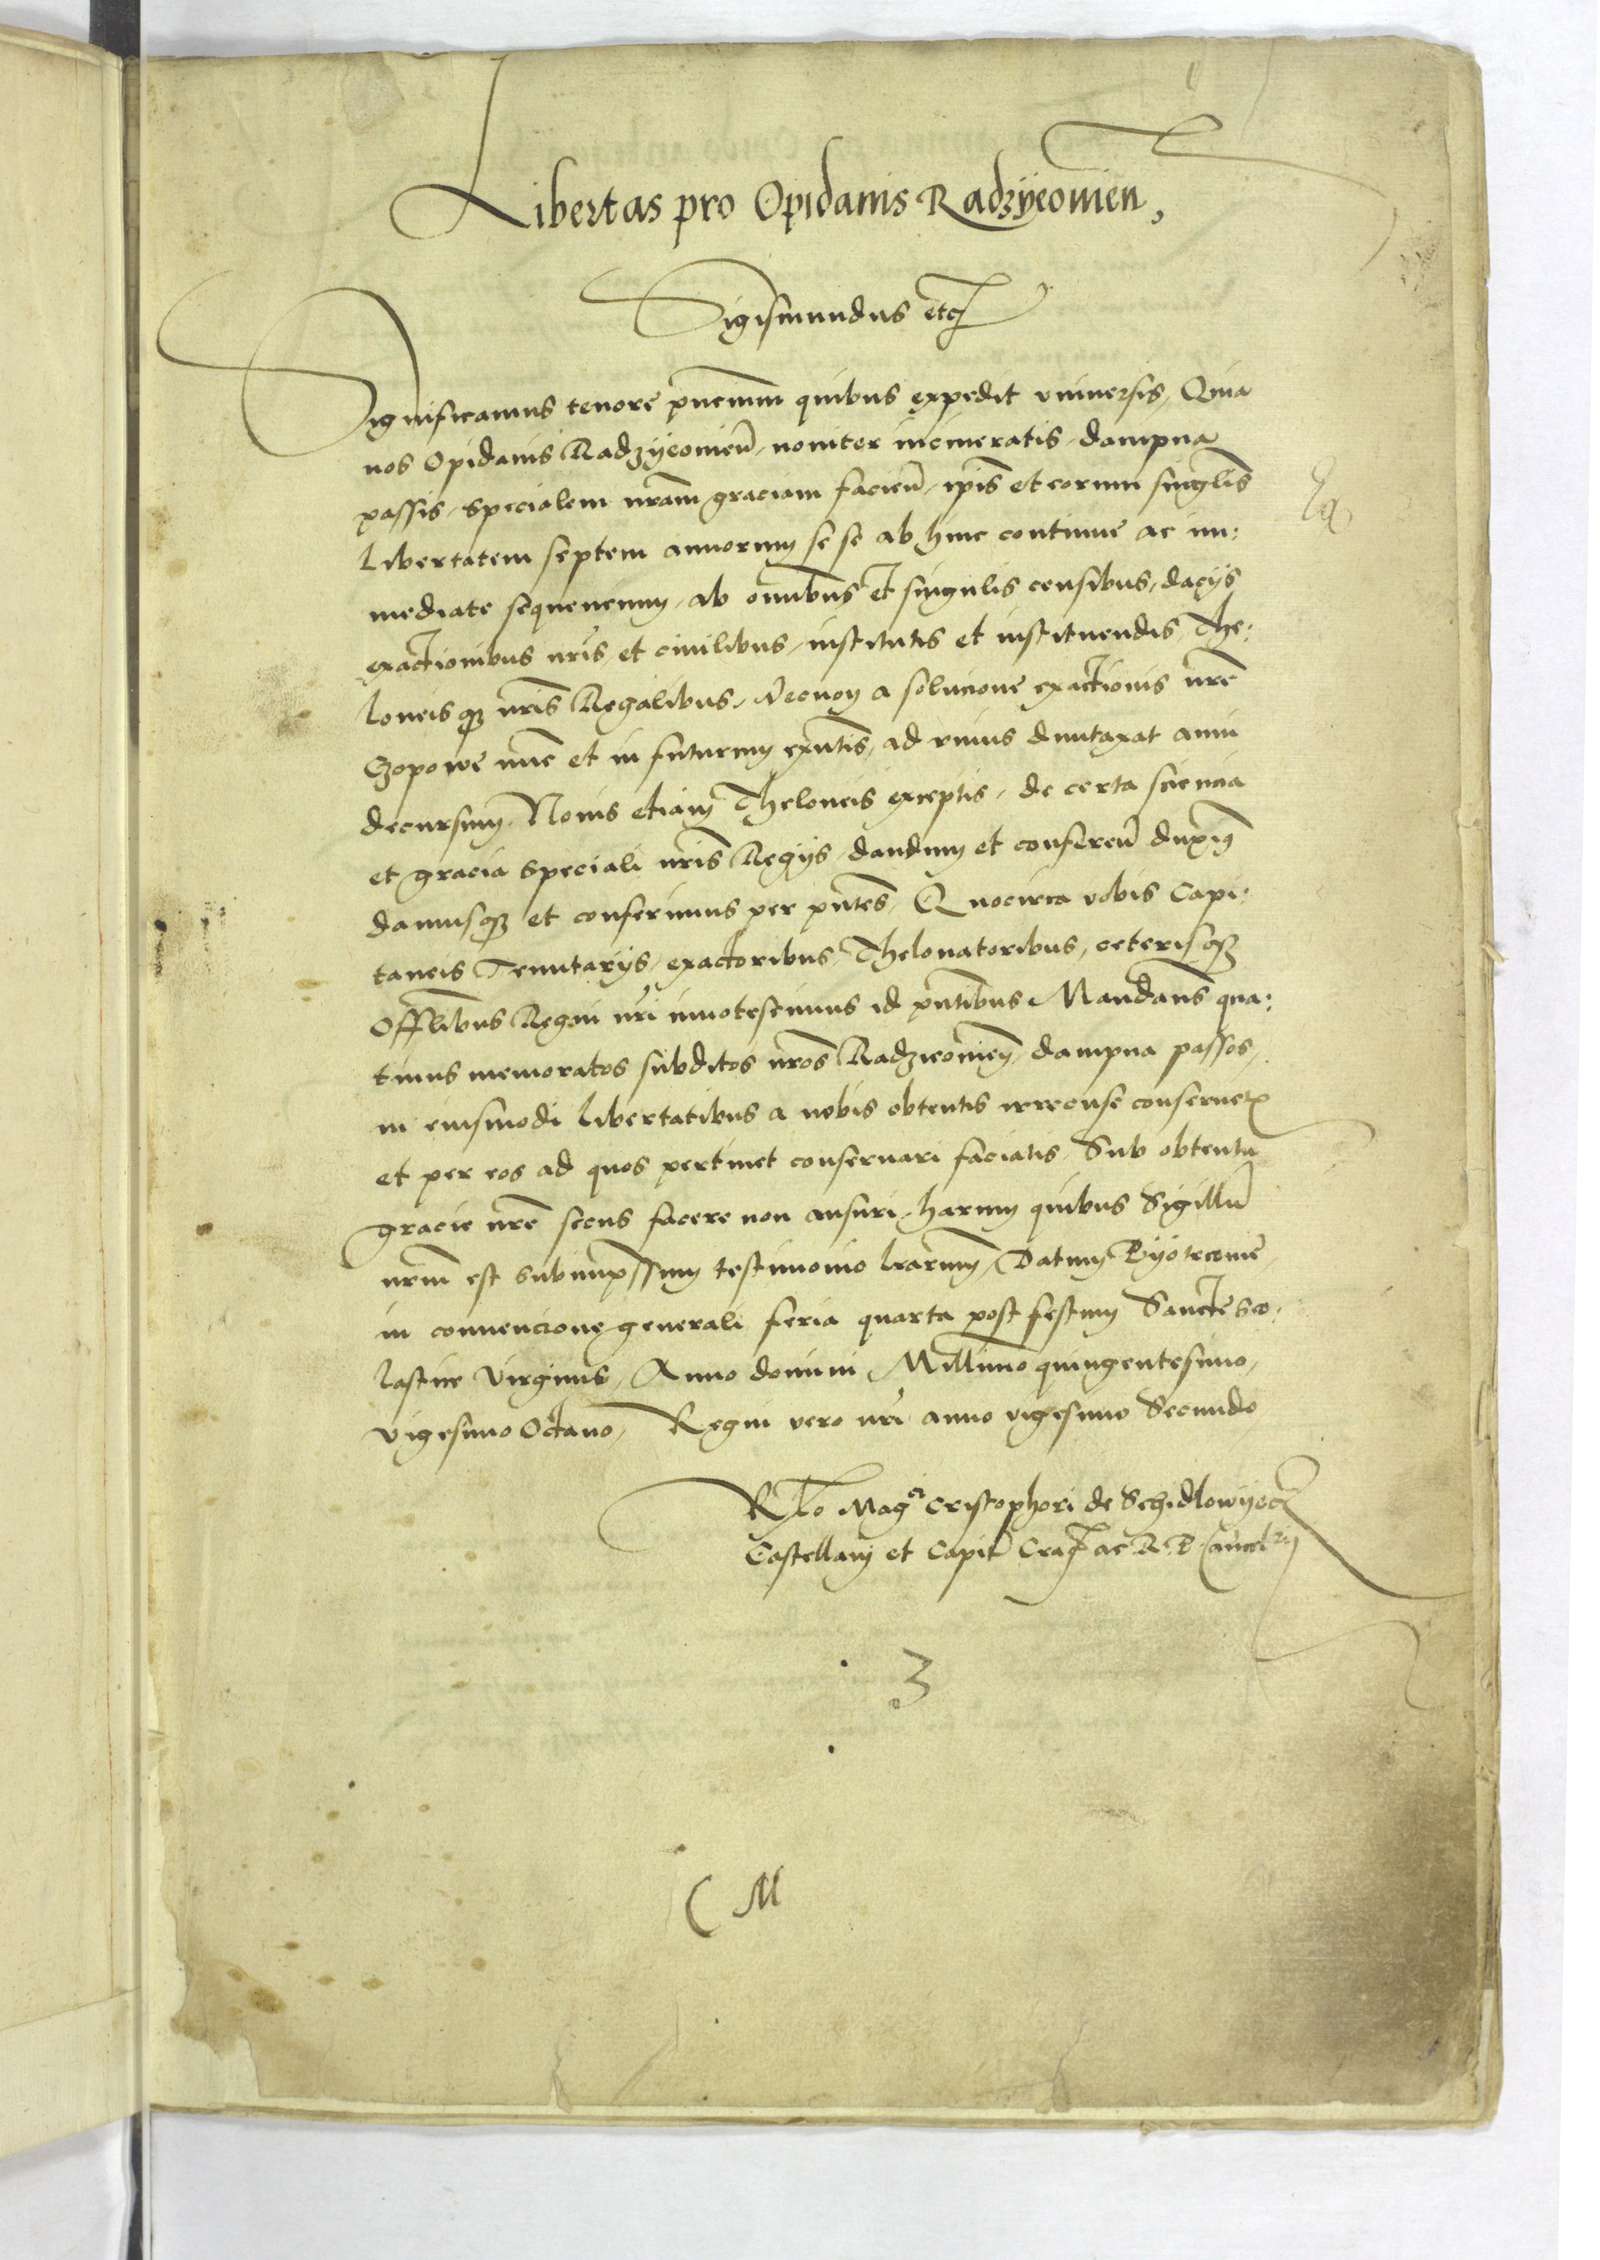 Libertas pro Opidanis Radzyeovien,
Sigismundus etc
Significamus tenore pncium quibus expedit vniuersis, Quia
nos Opidanis Radzyeovien, noniter incineratis dampna
passis, specialem nram graciam facien, ipis et eorum singlis
libertatem septem annorum se se ab hinc continue ac im:
mediate sequencium, ab omnibus et singulis censibus, dacys
exactionibus nris et ciuilibus, institutis et instituendis, The:
loneis qz nris Regalibus, Necnon a solucione exactionis nre
Czopowe nunc et in futurum exntis, ad vnius duntaxat anni
decursum, Nouis etiam Theloneis exceptis, de certa sciencia
et gracia speciali nris Regys dandum et conferen duxim9
damusqz et conferimus per pntes, Quocirca vobis Capi:
taneis Tenutarys, exactoribus, Thelonatoribus, ceterisqz
Offlibus Regni nri innotescimus id pntibus Mandans qua:
tinus memoratos subditos nros Radzieovien, dampna passos,
in eiusmodi libertatibus a nobis obtentis irrecuse conseruetis
et per eos ad quos pertinet conseruari faciatis Sub obtentu
gracie nre secus facere non ausuri, harum quibus Sigillu
nrm est subimpssum testimonio lrarum, Datum Pyotrcovie
in convencione generali feria quarta post festum Sancte Sco:
lastice Virginis, Anno domini Millimo quingentesimo,
Vigesimo Octauo, Regni vero nri anno vigesimo Secundo
Rlo Magci Cristophori de Schidlowyecz
Castellani et Capit Crac ac R. P. Cancelrij
3
C M